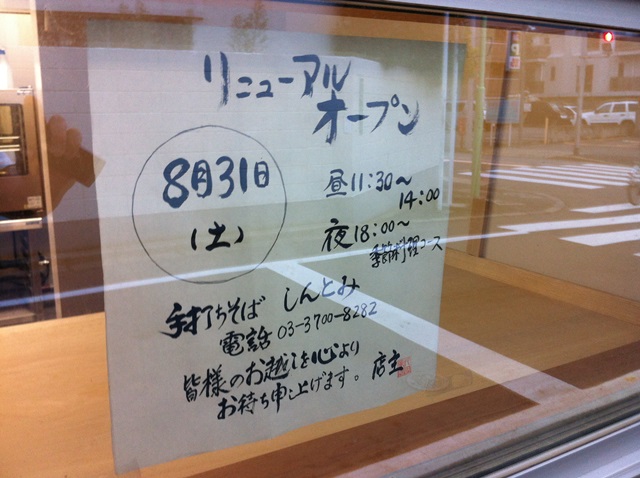 リニューアル
オープン
8月31日
(土)
昼11:30〜
14:00
夜18:00〜
季節料理コース
手打ちそば しんとみ
電話 03-3700-8282
皆様のお越しを心より
お待ち申し上げます。 店主